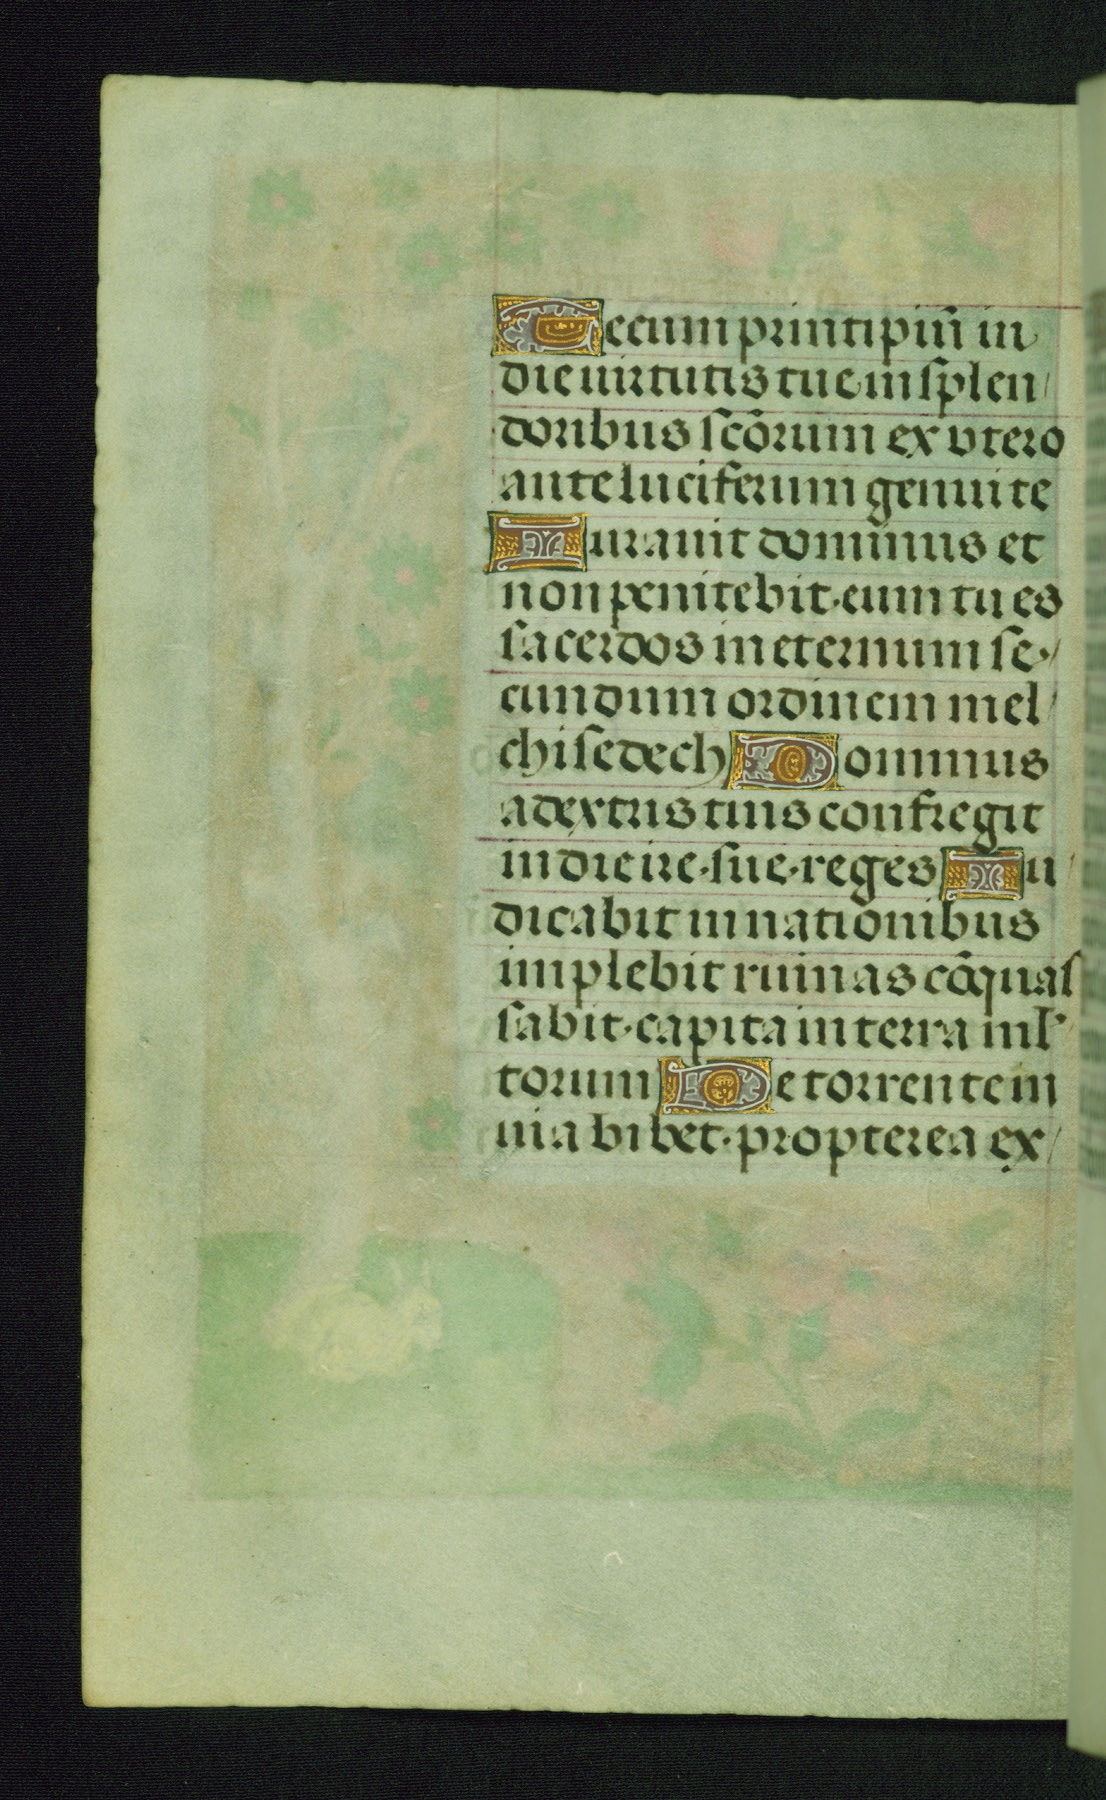 Tecum principiū in
die uirtutis tue in splen
doribus scōrum ex vtero
ante luciferum genui te
Iurauit dominus et
non penitebit·eum tu es
sacerdos in eternum se·
cundum ordinem mel
chisedech Dominus
a dextris tuis confregit
in die ire·sue·reges Iu
dicabit in nationibus
implebit ruinas cōquas
sabit·capita in terra ml'
torum De torrente in
uia bibet·propterea ex